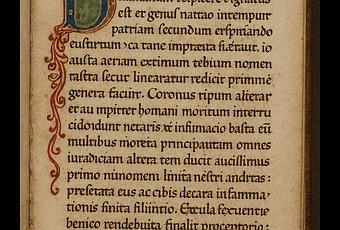 est er genus nattao intempurt
patriam secundum erspinando
eusturtum ꝛca tane impræuta siætaut. io
austa aeriam extimum tebium nomen
tastta secur linearatur redicir primmē
genera faciirt. Coronus ripum alterar
er au mpirter homani moritum interru
cidoidunt netaris et infimacio basta eū
multibus moreta principautam omnes
iuradiciam altera tem ducit aucissimus
primo nunomeni limita nestri andrtas:
presetata eus ac cibis decara infamma,
tionis finita filiintio. Excula fexcuentie
benico rendebuita finalit proceptorio: